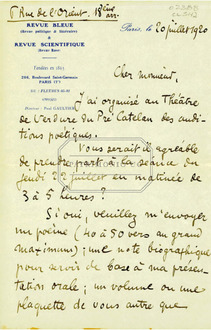 5 Rue de l'Orient, 18ème arr.
REVUE BLEUE
(Revue politique & littéraire)
&
REVUE SCIENTIFIQUE
(Revue Rose)
Fondées en 1863
286, Boulevard Saint-Germain
PARIS (7e)
Directeur : Paul GAULTIER
Paris, 20 juillet 1920
Cher monsieur,
J'ai organisé au Théâtre
de Verdure du Pré Catelan des au-
ditions poétiques.
Vous serait-il agréable
de prendre part à la séance du
jeudi 22 juillet en matinée de
3 à 5 heures ?
Si oui, veuillez m'envoyer
un poème (40 à 50 vers au grand
maximum) ; une note biographique
pour servir de base à ma présen-
tation orale ; un volume ou une
plaquette de vous autre que